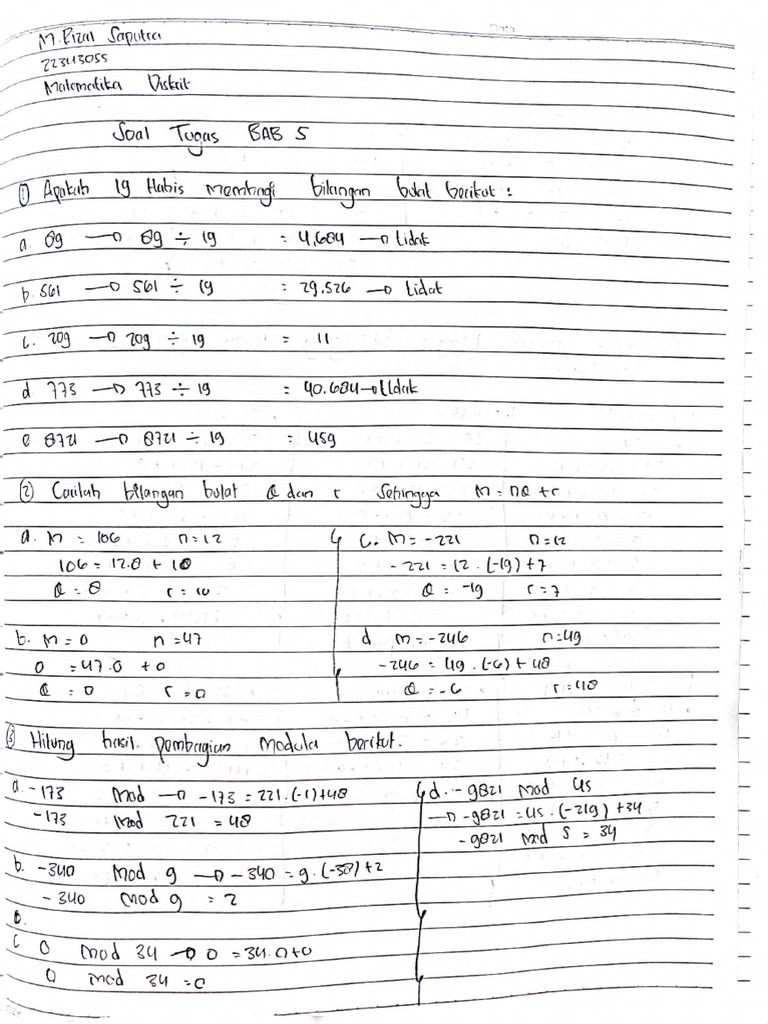 M. Rizal Saputra
22343055
Matematika Diskrit
Soal Tugas BAB 5
① Apakah 19 Habis membagi bilangan bulat berikut :
a. 89 → 89 ÷ 19 = 4,684 → tidak
b. 561 → 561 ÷ 19 = 29.526 → tidak
c. 209 → 209 ÷ 19 = 11
d 773 → 773 ÷ 19 = 40.684 → tidak
e 8721 → 8721 ÷ 19 = 459
② Carilah bilangan bulat Q dan r Sehingga M = nQ + r
a. M = 106 n = 12
106 = 12.8 + 10
Q = 8 r = 10
b. M = 0 n = 47
0 = 47.0 + 0
Q = 0 r = 0
c. M = -221 n = 12
-221 = 12 . (-19) + 7
Q = -19 r = 7
d M = -246 n = 49
-246 = 49 . (-6) + 48
Q = -6 r = 48
③ Hitung hasil pembagian Modula berikut.
a. -173 Mod → -173 = 221 . (-1) + 48
-173 Mod 221 = 48
b. -340 Mod 9 → -340 = 9 . (-38) + 2
-340 Mod 9 = 2
c 0 Mod 34 → 0 = 34.0 + 0
0 mod 34 = 0
d. -9821 Mod 45
→ -9821 = 45 . (-219) + 34
-9821 Mod 5 = 34